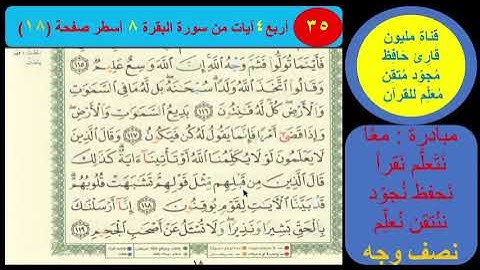 ٣٥
أربع ٤ آيات من سورة البقرة ٨ أسطر صفحة (١٨)
فَأَيْنَمَا تُوَلُّوا۟ فَثَمَّ وَجْهُ ٱللَّهِ إِنَّ ٱللَّهَ وَٰسِعٌ عَلِيمٌ ١١٥
وَقَالُوا۟ ٱتَّخَذَ ٱللَّهُ وَلَدًا سُبْحَٰنَهُۥ بَل لَّهُۥ مَا فِى ٱلسَّمَٰوَٰتِ
وَٱلْأَرْضِ كُلٌّ لَّهُۥ قَٰنِتُونَ ١١٦ بَدِيعُ ٱلسَّمَٰوَٰتِ وَٱلْأَرْضِ
وَإِذَا قَضَىٰٓ أَمْرًا فَإِنَّمَا يَقُولُ لَهُۥ كُن فَيَكُونُ ١١٧ وَقَالَ ٱلَّذِينَ
لَا يَعْلَمُونَ لَوْلَا يُكَلِّمُنَا ٱللَّهُ أَوْ تَأْتِينَآ ءَايَةٌ كَذَٰلِكَ
قَالَ ٱلَّذِينَ مِن قَبْلِهِم مِّثْلَ قَوْلِهِمْ تَشَٰبَهَتْ قُلُوبُهُمْ
قَدْ بَيَّنَّا ٱلْءَايَٰتِ لِقَوْمٍ يُوقِنُونَ ١١٨ إِنَّآ أَرْسَلْنَٰكَ
بِٱلْحَقِّ بَشِيرًا وَنَذِيرًا وَلَا تُسْـَٔلُ عَنْ أَصْحَٰبِ ٱلْجَحِيمِ ١١٩
١٨
قناة مليون
قارئ حَافِظ
مُجوّد مُتقن
مُعلّم للقرآن
مبادرة : معًا
نَتَعلَّم نَقرأ
نَحفظ نُجوّد
نتقن نُعلّم
نصف وجه